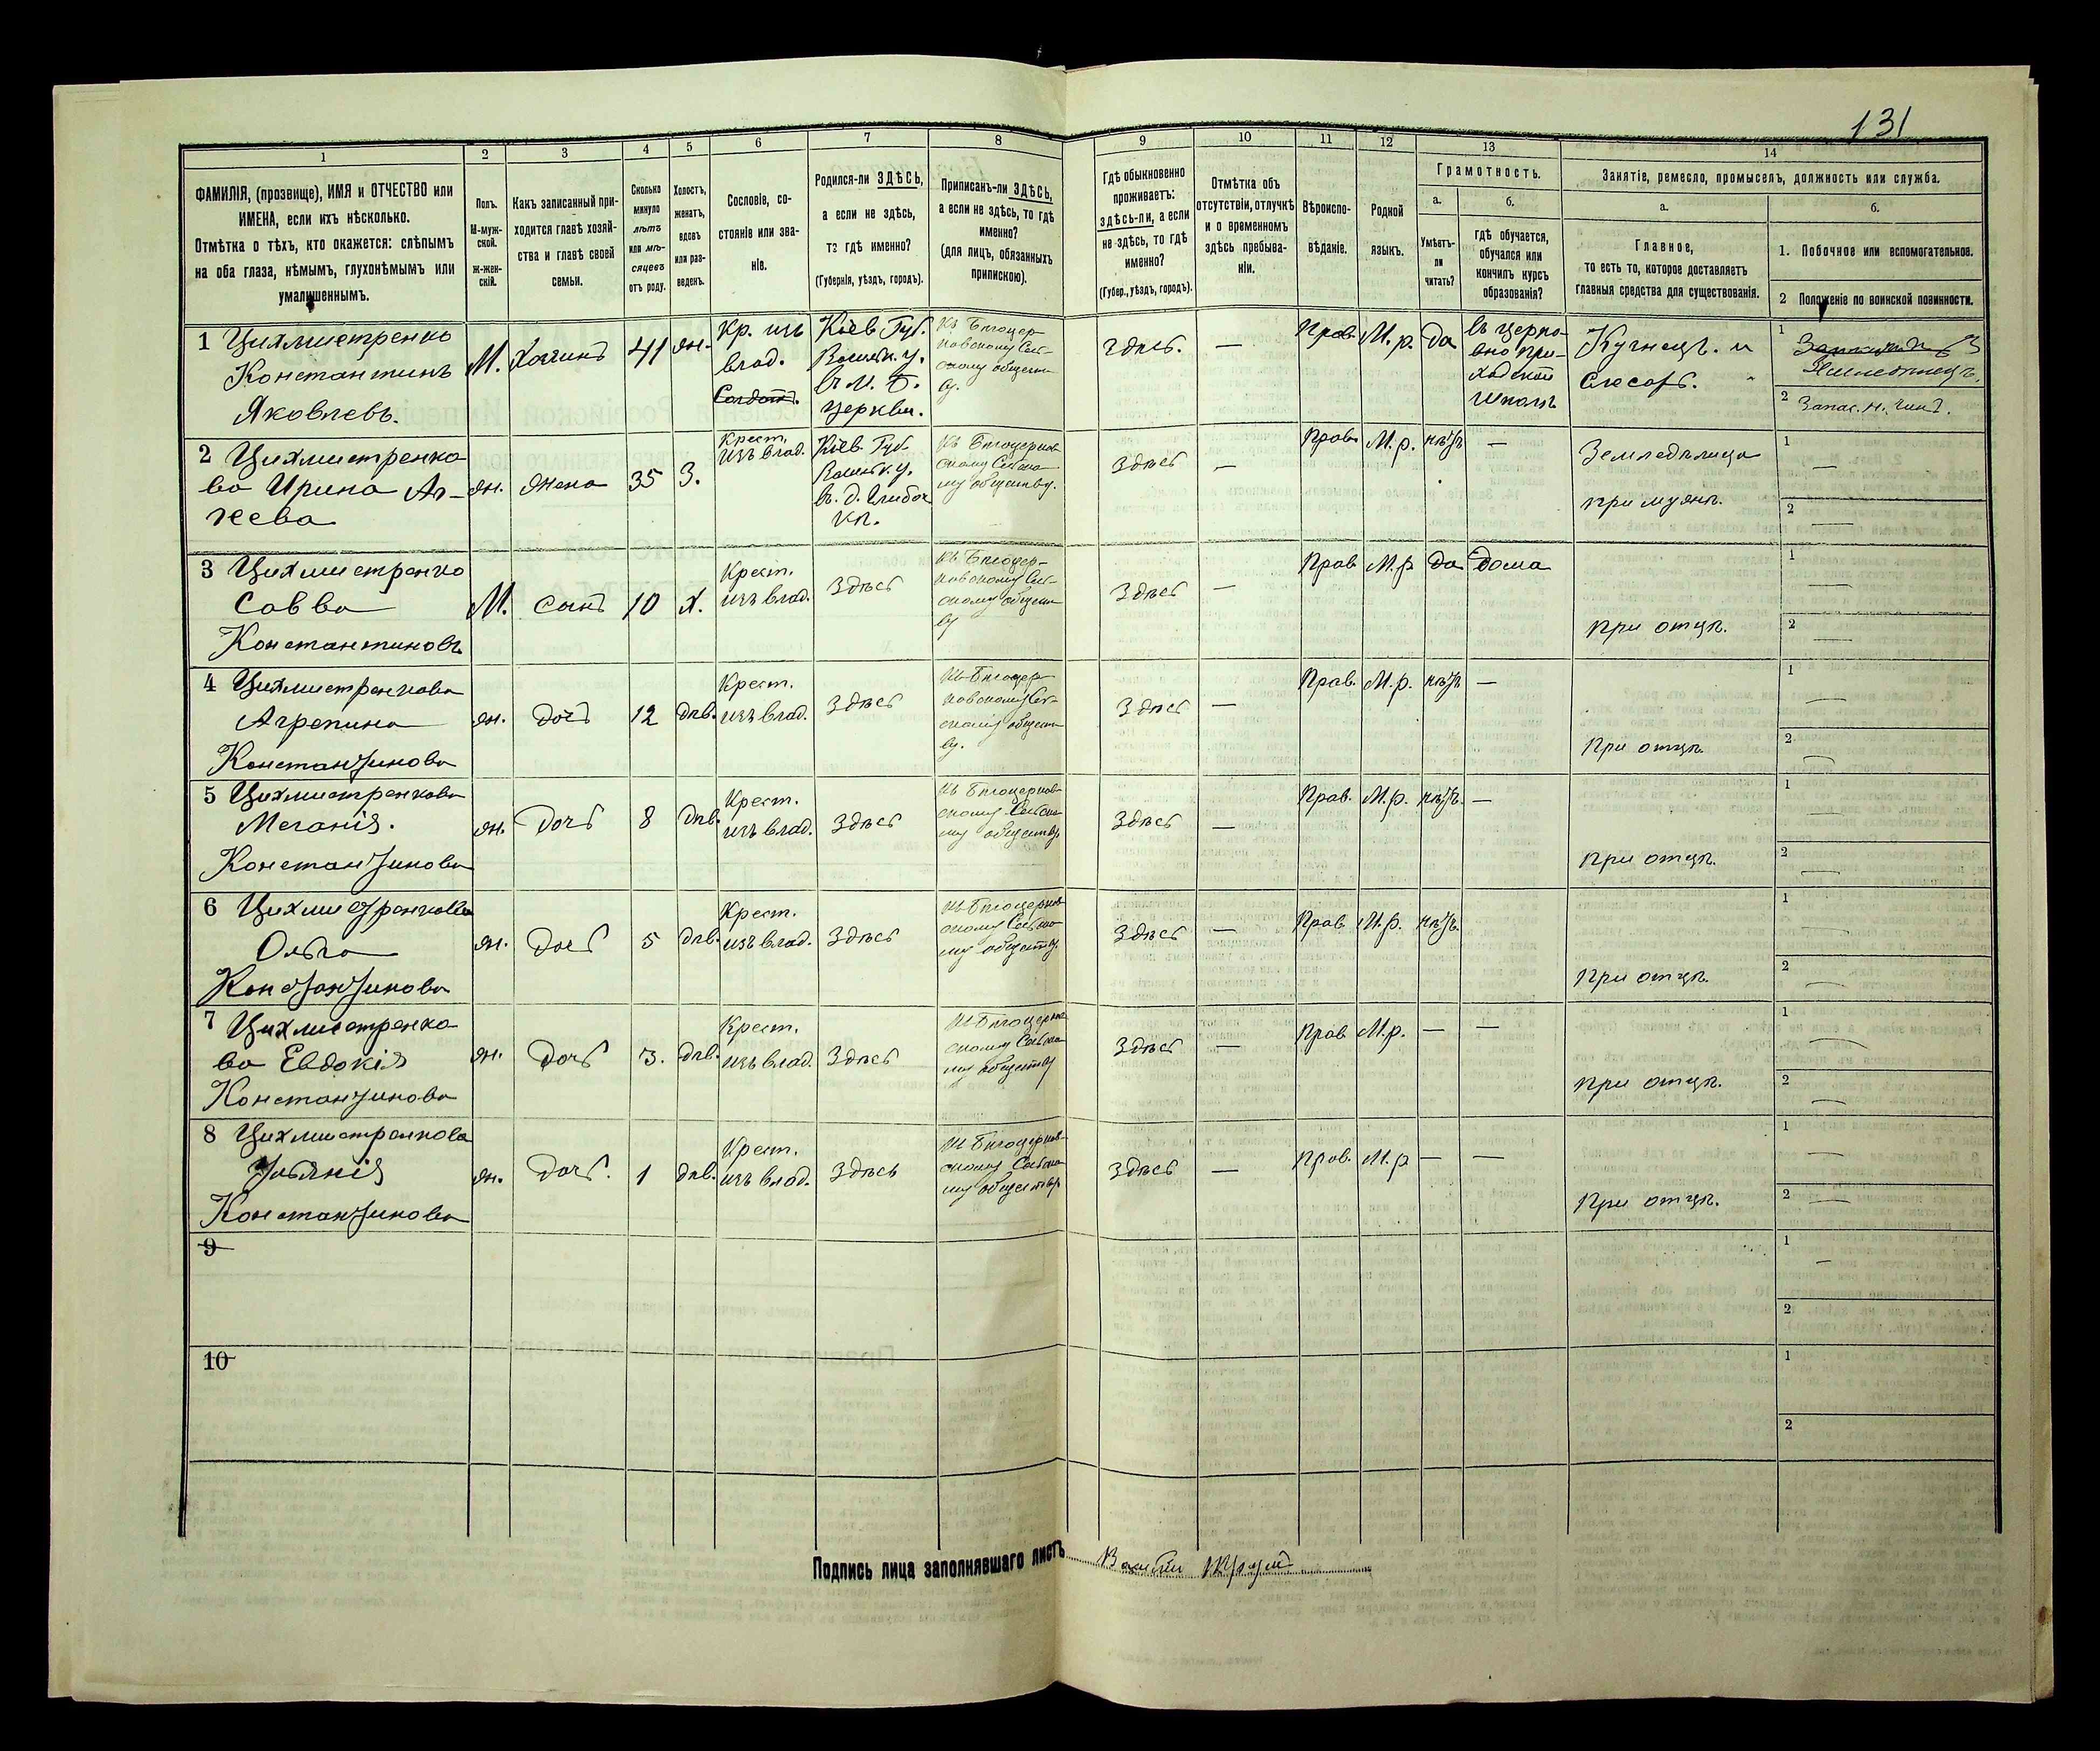 131
1
2
3
4
5
6
7
8
9
10
11
12
13
14
ФАМИЛІЯ, (прозвище), ИМЯ и ОТЧЕСТВО или
ИМЕНА, если ихъ нѣсколько.
Отмѣтка о тѣхъ, кто окажется: слѣпымъ
на оба глаза, нѣмымъ, глухонѣмымъ или
умалишеннымъ.
Полъ.
М-муж-
ской.
Ж-жен-
скій.
Какъ записанный при-
ходится главѣ хозяй-
ства и главѣ своей
семьи.
Сколько
минуло
лѣтъ
или мѣ-
сяцевъ
отъ роду.
Холостъ,
женатъ,
вдовъ
или раз-
веденъ.
Сословіе, со-
стояніе или зва-
ніе.
Родился-ли ЗДѢСЬ,
а если не здѣсь,
то гдѣ именно?
(Губернія, уѣздъ, городъ).
Приписанъ-ли ЗДѢСЬ,
а если не здѣсь, то гдѣ
именно?
(для лицъ, обязанныхъ
припискою).
Гдѣ обыкновенно
проживаетъ:
здѣсь-ли, а если
не здѣсь, то гдѣ
именно?
(Губер., уѣздъ, городъ).
Отмѣтка объ
отсутствіи, отлучкѣ
и о временномъ
здѣсь пребыва-
ніи.
Вѣроиспо-
вѣданіе.
Родной
языкъ.
Грамотность.
а.
Умѣетъ-
ли
читать?
б.
гдѣ обучается,
обучался или
кончилъ курсъ
образованія?
Занятіе, ремесло, промыселъ, должность или служба.
а.
Главное,
то есть то, которое доставляетъ
главныя средства для существованія.
б.
1. Побочное или вспомогательное.
2 Положеніе по воинской повинности.
1 Цихмистренко
Константинъ
Яковлевъ.
М.
Хозяинъ
41
жн.
Кр. изъ
влад.
Солдатъ.
Кіев. Губ.
Васильк. у.
в м. Б.
церкви.
Къ Бѣлоцер-
ковскому Сель-
скому общест-
ву.
Здѣсь.
—
Прав.
М. р.
да
въ церко-
вно при-
ходской
школѣ
Кузнецъ. и
Слесарь.
1
2 Запас. н. чинъ.
2 Цихмистренко-
ва Ирина Ар-
жн.
жена
35
З.
Крест.
изъ влад.
Кіев. Губ.
Васильк. у.
в. д. Глибоч-
кѣ.
Къ Бѣлоцерков-
скому Сельско-
му обществу.
Здѣсь
—
Прав.
М. р.
нѣтъ
—
Земледѣлица
при мужѣ.
1
—
2
—
3 Цихмистренко
Савва
Константиновъ
М.
сынъ
10
х.
Крест.
изъ влад.
Здѣсь
Къ Бѣлоцер-
ковскому Сель-
скому общест-
ву
Здѣсь
—
Прав
М.р
да
Дома
при отцѣ.
1
—
2
—
4 Цихмистренкова
Агрепина
Константинова
жн.
дочь
12
дѣв.
Крест.
изъ влад.
Здѣсь
Къ Бѣлоцер-
ковскому Сель-
скому общест-
ву.
Здѣсь
—
Прав.
М. р.
нѣтъ
—
При отцѣ.
1
—
2
—
5 Цихмистренкова
Меланія.
Константинова
жн.
Дочь
8
дѣв.
Крест.
изъ влад.
Здѣсь
Къ Бѣлоцерков-
скому Сельско-
му обществу.
Здѣсь
—
Прав.
М. р.
нѣтъ.
—
При отцѣ.
1
—
2
—
6 Цихмистренкова
Ольга
Константинова
жн.
Дочь
5
дѣв.
Крест.
изъ влад.
Здѣсь
Къ Бѣлоцерков-
скому Сельско-
му обществу.
Здѣсь
—
Прав
М. р.
нѣтъ.
При отцѣ.
1
—
2
—
7 Цихмистренко-
ва Евдокія
Константинова
жн.
Дочь
3.
дѣв.
Крест.
изъ влад.
Здѣсь
Къ Бѣлоцерков-
скому Сельско-
му обществу
Здѣсь
—
Прав
М. р.
—
—
При отцѣ.
1
—
2
—
8 Цихмистренкова
Ульянія
Константинова
жн.
Дочь.
1
дѣв.
Крест.
изъ влад.
Здѣсь
Къ Бѣлоцерков-
скому Сельско-
му обществу
Здѣсь
—
Прав.
М. р
—
—
При отцѣ.
1
—
2
—
9
1
—
2
10
1
2
Подпись лица заполнявшаго листъ